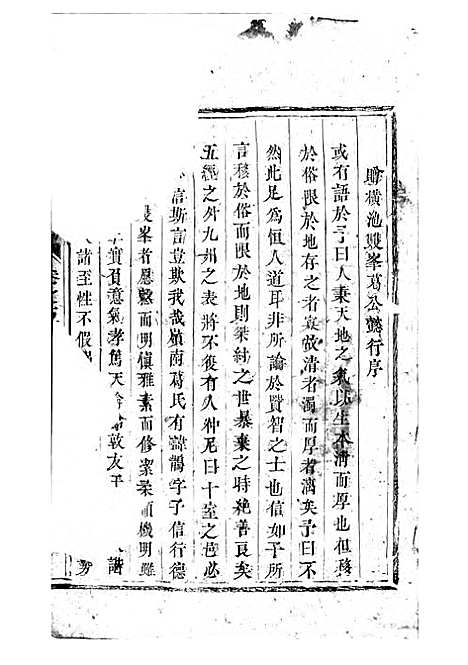 贈橫池雙峯葛公懿行序
或有語於予曰人秉天地之氣以生本清而厚也但移
於俗限於地存之者寡故清者濁而厚者漓矣予曰不
然此足為恒人道耳非所論於賢智之士也信如子所
言移於俗而限於地則桀紂之世暴棄之時絕善良矣
五經之外九州之表將不復有人仲尼曰十室之邑必
信斯言豈欺我哉嶺南葛氏有諱鵠字子信行德
峯者恩懿而明慎雅素而修潔果順機明雖
資負意氣孝篤天 敦友于 諧
諸至性不假